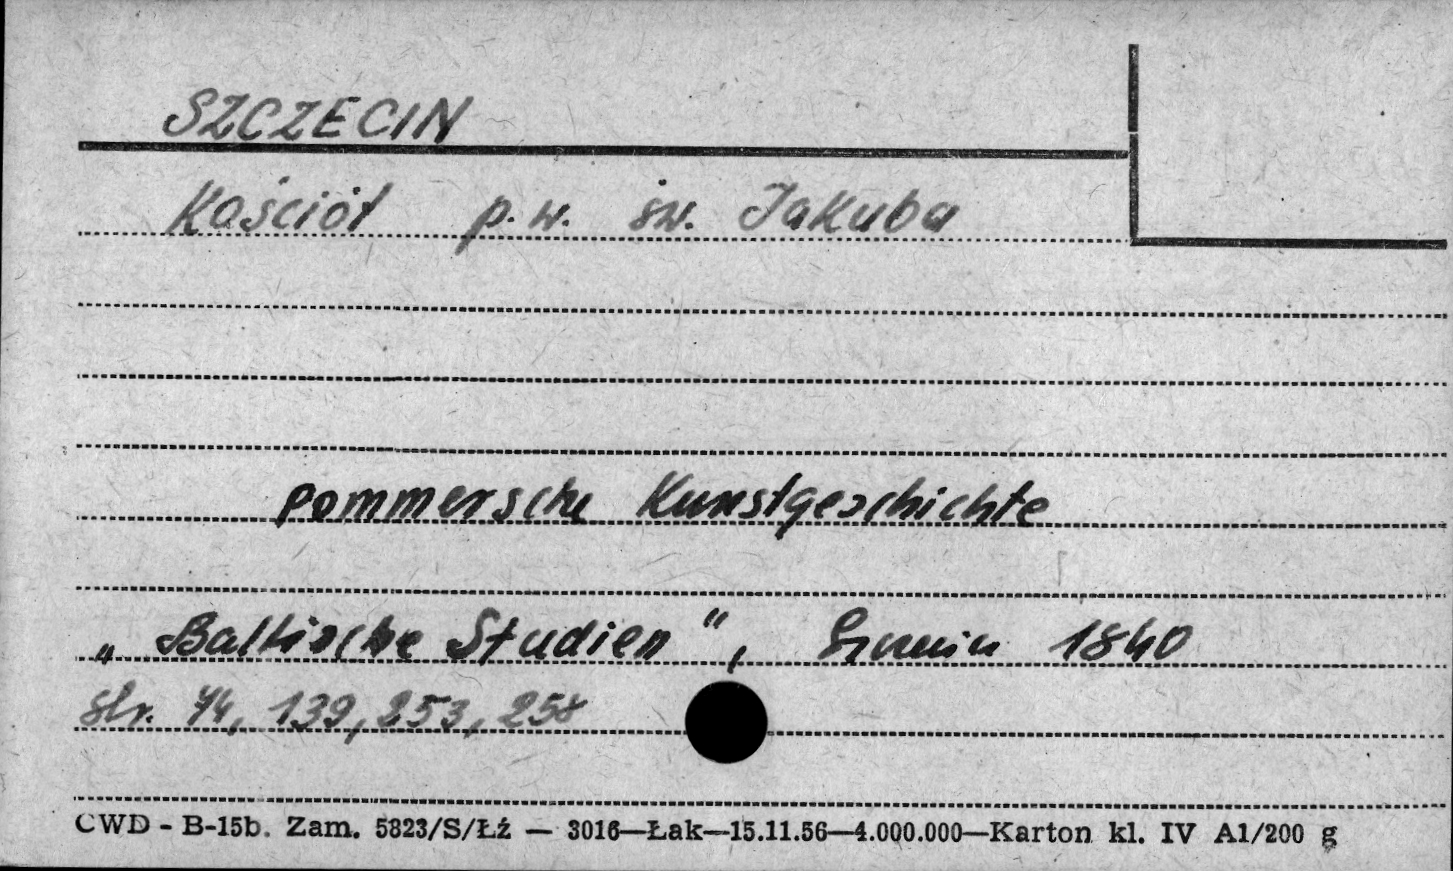 SZCZECIN
Kościół p.w. św. Jakuba
pommersche Kunstgeschichte
„Baltische Studien", 1840
str. 74, 139, 253, 258
CWD - B-15b. Zam. 5823/S/Łź — 3016—Łak—15.11.56—4.000.000—Karton kl. IV A1/200 g